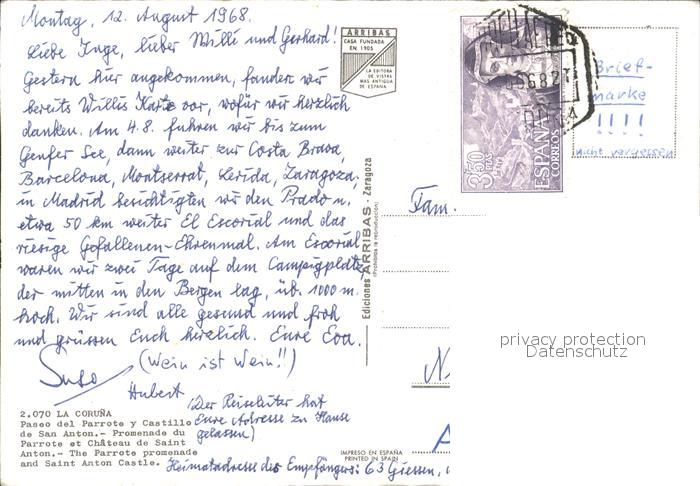 Montag, 12. August 1968.
Liebe Inge, lieber Willi und Gerhard!
Gestern hier angekommen, fanden wir
bereits Willis Karte vor, wofür wir herzlich
danken. Am 4.8. fuhren wir bis zum
Genfer See, dann weiter zur Costa Brava,
Barcelona, Montserrat, Lerida, Zaragoza,
in Madrid besichtigten wir den Prado u.
etwa 50 km weiter El Escorial und das
riesige Gefallenen-Ehrenmal. Am Escorial
waren wir zwei Tage auf dem Campigplatz,
der mitten in den Bergen lag, üb. 1000 m.
hoch. Wir sind alle gesund und froh
und grüssen Euch herzlich. Eure Eva.
(Wein ist Wein!!)
Hubert
(Der Reiseleiter hat
Eure Adresse zu Hause
gelassen)
2.070 LA CORUÑA
Paseo del Parrote y Castillo
de San Anton.- Promenade du
Parrote et Château de Saint
Anton.- The Parrote promenade
and Saint Anton Castle.
Heimatadresse des Empfängers: 63 Giessen,
ARRIBAS
CASA FUNDADA
EN 1905
LA EDITORA
DE VISTAS
MAS ANTIGUA
DE ESPAÑA
Ediciones ARRIBAS - Zaragoza
(Prohibida la reproducción)
IMPRESO EN ESPAÑA
PRINTED IN SPAIN
3'50
PTAS
ESPAÑA
CORREOS
Brief-
marke
!!!!
nicht vergessen
Fam.
N
A
privacy protection
Datenschutz